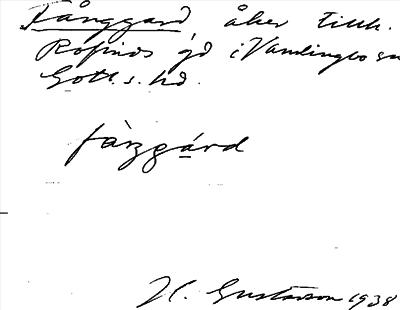 Fånggard, åker tillh.
Rofinds gd i Vamlingbo sn
Gotl. s. hd.
fàŋgárd
H. Gustavson 1938